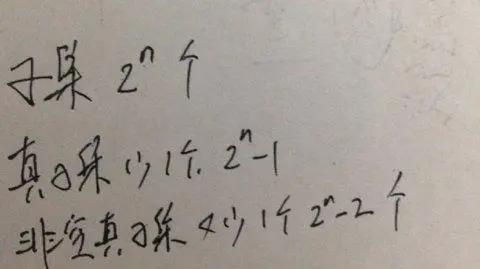 子集 2ⁿ 个
真子集 少1个. 2ⁿ-1
非空真子集 又少1个 2ⁿ-2 个